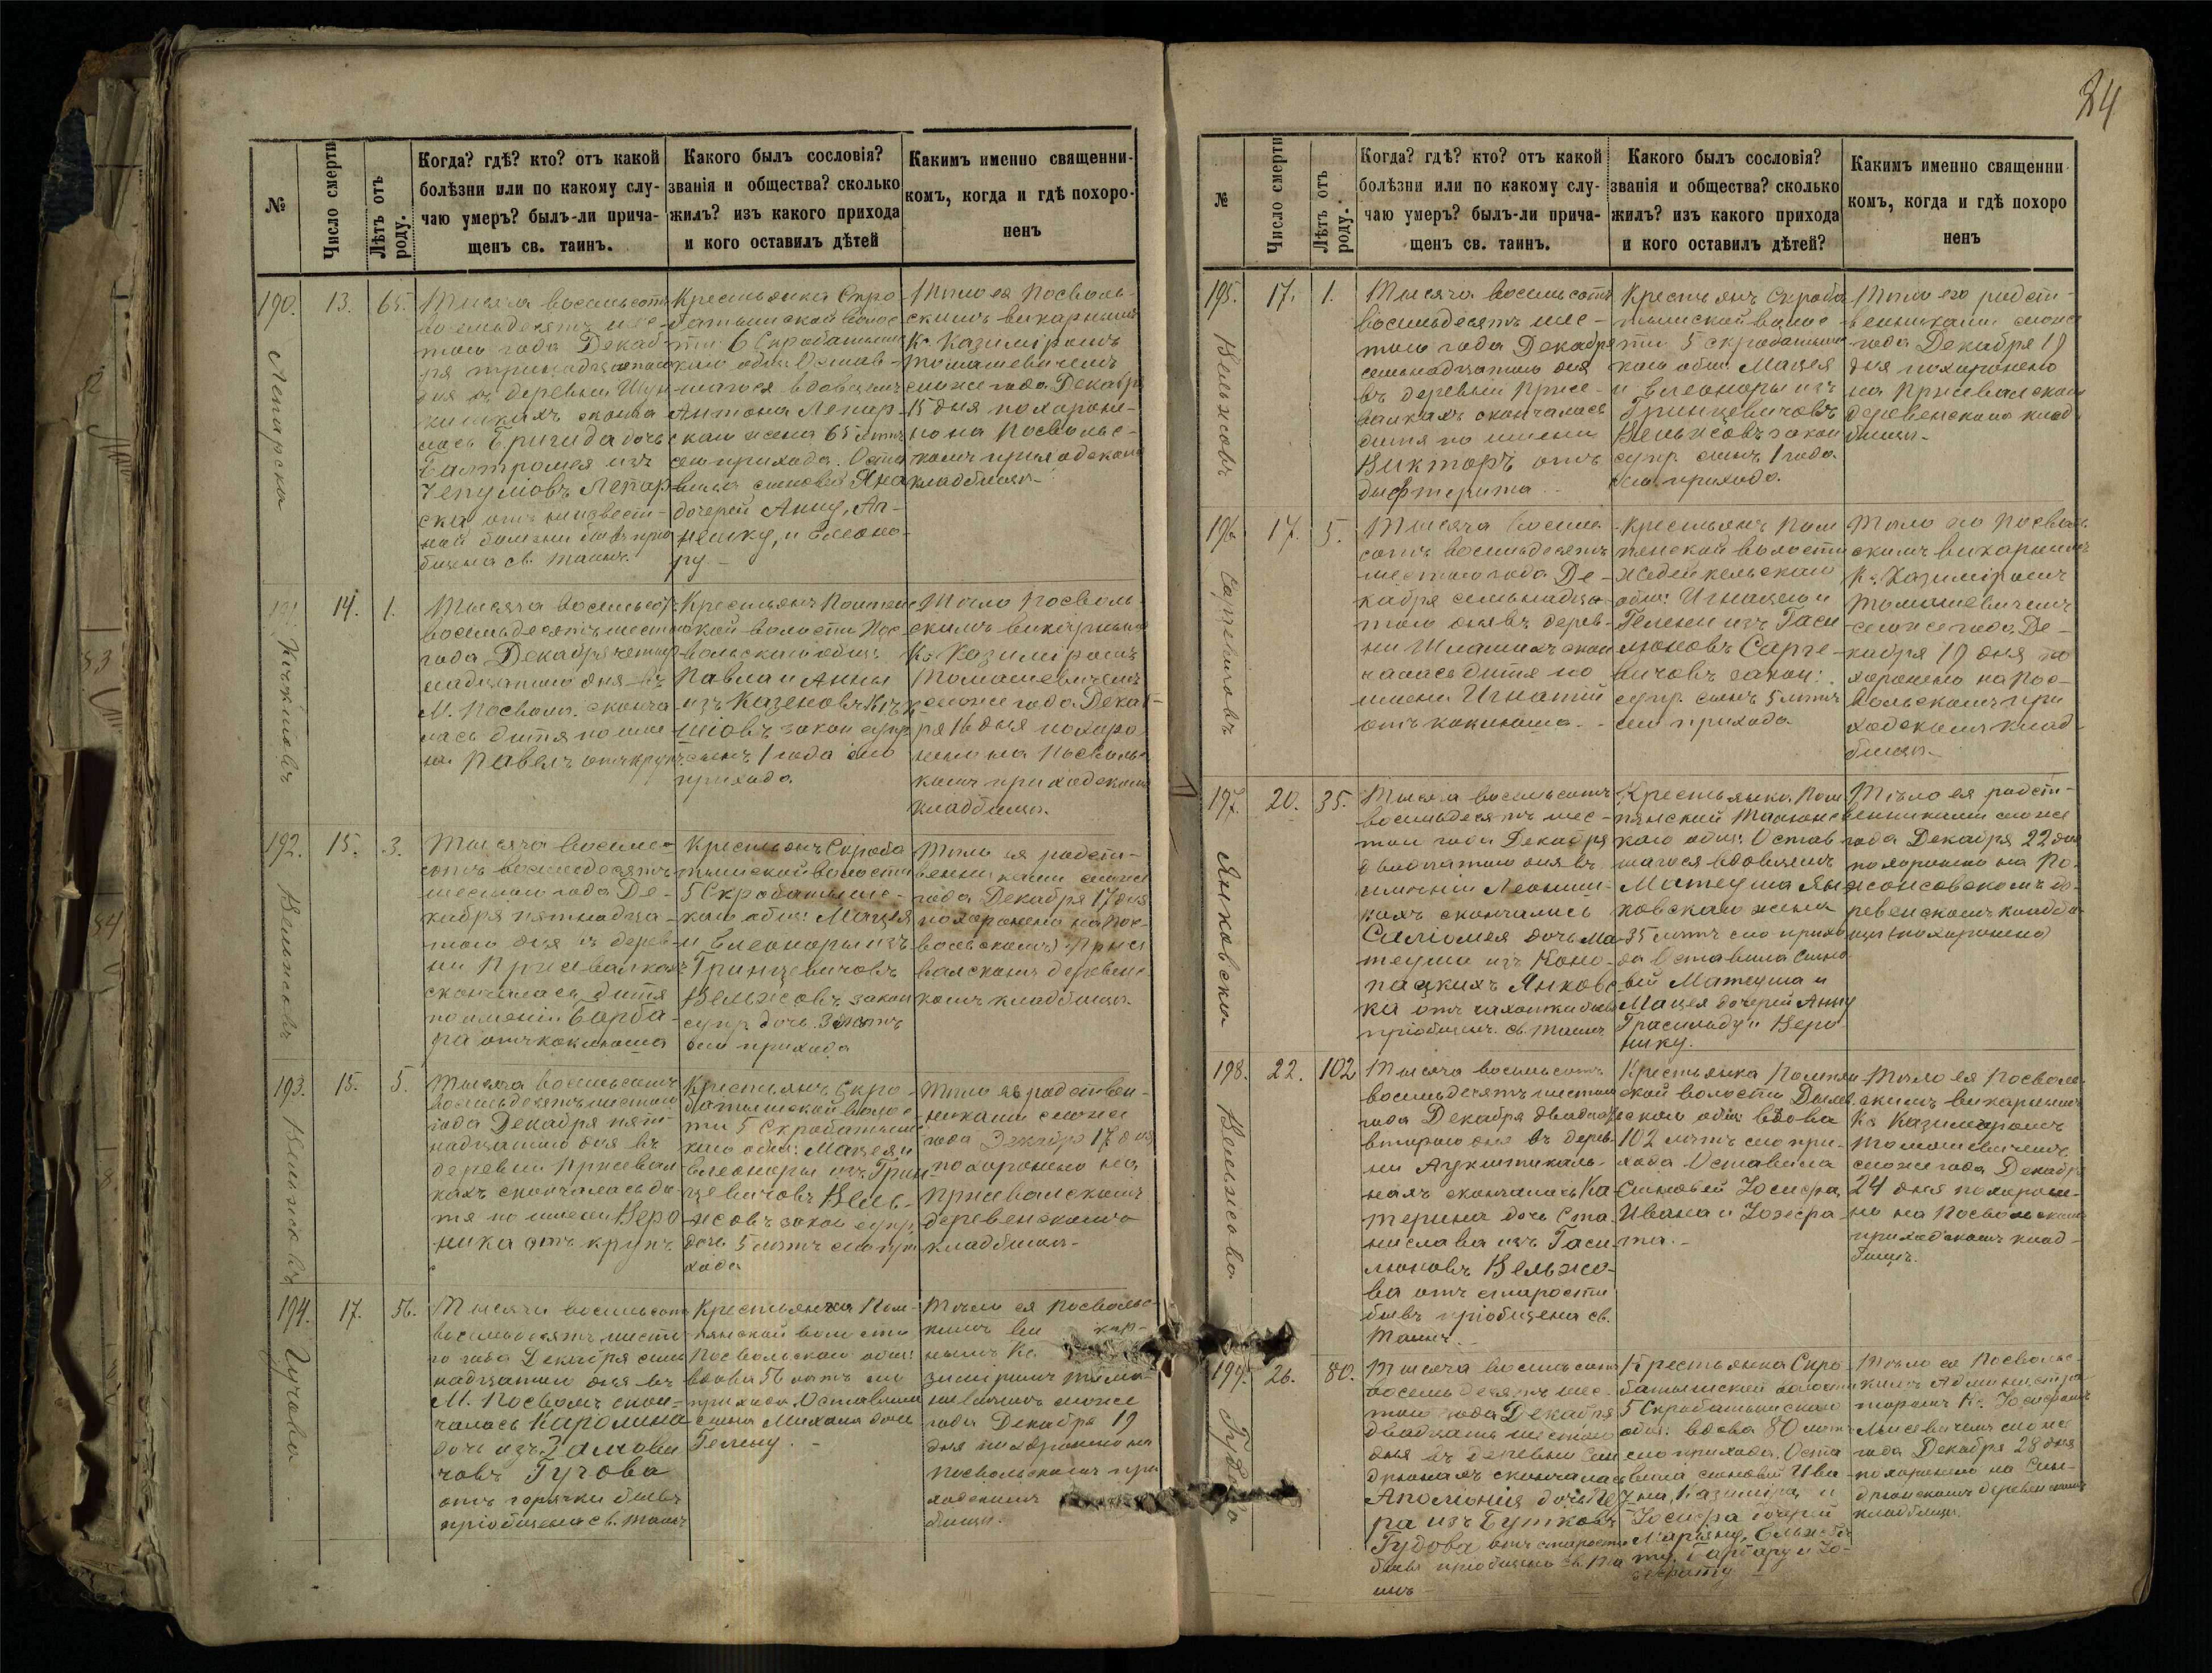 84
№
Число смерти
Лѣтъ отъ роду.
Когда? гдѣ? кто? отъ какой
болѣзни или по какому слу-
чаю умеръ? былъ-ли прича-
щенъ св. таинъ.
Какого былъ сословія?
званія и общества? сколько
жилъ? изъ какого прихода
и кого оставилъ дѣтей
Какимъ именно священни-
комъ, когда и гдѣ похоро-
ненъ
190.
13.
65.
Тысяча восемьсотъ
восемьдесятъ шес-
таго года Декаб-
ря тринадцатаго
дня въ деревни
сконча
лась Бригида дочь
Балтромея изъ
Чепулiовъ Лепар-
ска отъ неизвест-
ной болезни бывъ прiо
бщена св. таинъ.
Крестьянка Скро
батышской волос
ти 6 Скробатышс
каго общ: Остав-
шагося вдовцемъ
Антона Лепар-
скаго жена 65 летъ
сего прихода. Оста
вила сыновей Яна
дочерей Анну, Аг-
нешку, и Елеоно-
ру -
Тѣло ея Посволь-
скимъ викарнымъ
К. Казимiромъ
Томашевичемъ
сего же года Декабр
15 дня похороне-
но на Посвольс-
комъ приходскомъ
кладбищи.
14.
1.
Тысяча восемьсотъ
восемьдесятъ шест
года Декабря четыр
надцатаго дня въ
М. Посволи. сконча
лась дитя по име
ни Павелъ отъ крупъ
Крестьянъ Помпян
ской волости Пос
вольскаго общ:
Павла и Анны
изъ Казеновъ
закон супр
сынъ 1 года сего
прихода
Тѣло Посволь
скимъ викарнымъ
К. Казимiромъ
Томашевичемъ
сего же года Декаб-
ря 16 дня похоро
нено на Посвольс
комъ приходскомъ
кладбищи.
192.
Вельжсовъ
15.
3.
Тысяча восемь-
сотъ восемьдесятъ
шестаго года Де-
кабря пятнадца-
таго дня въ дерев-
ни Присвалкахъ
скончалась дитя
по имени Барба-
ра отъ коклюша
Крестьянъ Скроба
тышской волости
5 Скробатышс-
каго общ: Мацея
и Елеоноры изъ
Гринцевичовъ
Вельжсовъ закон
супр дочь 3 летъ
сего прихода
Тѣло ея родст-
венниками сегоже
года Декабря 17 дня
похоронено на
Присвалскомъ деревенс
комъ кладбищи.
193.
Вельжсовъ
15.
5.
Тысяча восемьсотъ
восемьдесятъ шестаго
года Декабря пят
надцатаго дня въ
деревни Присвал
кахъ скончалась ди
тя по имени Веро
ника отъ крупъ
Крестьянъ Скро-
батышской волос
ти 5 Скробатышс
каго общ: Мацея и
Елеоноры изъ Грин
цевичовъ Вель-
жсовъ закон супр.
дочь 5 летъ сего при
хода
Тѣло ея родствен-
никами сегоже
года Декабря 17 дня
похоронено на
Присвалскомъ
деревенскомъ
кладбищи.
194.
Гучова
17.
56.
Тысяча восемьсотъ
восемьдесятъ шеста
го года Декабря семь
надцатаго дня въ
М. Посволь скон-
чалась Каролина
дочь изъ
човъ Гучова
отъ горячки бывъ
прiобщена св. таинъ
Крестьянка Пом-
пянской волости
Посвольскаго общ:
вдова 56 летъ сего
прихода. Оставила
сына Михаила дочь
Гелену. -
Тѣло ея Посвольс-
кимъ ви кар-
нымъ Кс.
зимiромъ Тома-
шевичемъ сегоже
года Декабря 19
дня похоронено на
Посвольскомъ при
ходскомъ
бищи.
№
Число смерти
Лѣтъ отъ роду.
Когда? гдѣ? кто? отъ какой
болѣзни или по какому слу-
чаю умеръ? былъ-ли прича-
щенъ св. таинъ.
Какого былъ сословія?
званія и общества? сколько
жилъ? изъ какого прихода
и кого оставилъ дѣтей?
Какимъ именно священни
комъ, когда и гдѣ похоро
ненъ
195.
Вельжсовъ
17.
1.
Тысяча восемьсотъ
восемьдесятъ шес-
таго года Декабря
семьнадцатаго дня
въ деревни Присе-
валкахъ скончалась
дитя по имени
Викторъ отъ
дыфтерита
Крестьянъ Скроба
тышской волос
ти 5 Скробатышс
каго общ: Мацея
и Елеоноры изъ
Гринцевичовъ
Вельжсовъ закон
супр. сынъ 1 года
сего прихода.
Тѣло его родст-
венниками сегоже
года Декабря 19
дня похоронено
на Присвалском
деревенскомъ клад
бищи.
196.
17.
5.
Тысяча восемь
сотъ восемьдесятъ
шестаго года Де-
кабря семьнадца
таго дня въ дерев-
ни скон
чалась дитя по
имени Игнатiй
отъ коклюша.
Крестьянъ Пом
пянской волости
общ: Игнацего и
Гелены изъ Гаси
люновъ Сарге-
вичовъ закон:
супр. сынъ 5 летъ
сего прихода.
Тѣло его Посволь
скимъ викарнымъ
К. Казимiромъ
Томашевичемъ
сегоже года Де-
кабря 19 дня по
хоронено на Пос-
вольскомъ при
ходскомъ клад
бищи.
197.
Янковска
20.
35.
Тысяча восемьсотъ
восемьдесятъ шес-
таго года Декабря
двадцатаго дня въ
имѣнiи
кахъ скончалась
Салiомея дочь Ма-
теуша изъ Коно-
пацкихъ Янковс
ка отъ чахотки бывъ
прiобщен. св. таинъ
Крестьянка Пом
пянской
каго общ: Остав
шагося вдовцемъ
Матеуша Ян
ковскаго жена
35 летъ сего прихо
да Оставила сыно
вей Матеуша и
Мацея дочерей Анну
Грасильду и Веро
нику.
Тѣло ея родст-
венниками сегоже
года Декабря 22 дня
похоронено на По-
де-
ревенскомъ кладби
щи (похоронено)
198.
Вельжсова
22.
102
Тысяча восемьсотъ
восемьдесятъ шестаго
года Декабря двадцат
втораго дня въ дерев-
ни
нахъ скончалась Ка
терина дочь Ста
нислава изъ Гаси-
люновъ Вельжсо-
ва отъ старости
бывъ прiобщена св.
Таинъ.
Крестьянка Помпян
ской волости
скаго общ: вдова
102 летъ сего при-
хода Оставила
Сыновей Iосифа,
Ивана и
Тѣло ея Посволь
скимъ викарнымъ
К. Казимiромъ
Томашевичемъ
сегоже года Декабр
24 дня похороне-
но на Посвольском
приходскомъ клад-
бищѣ.
199.
Гудова
26.
80.
Тысяча восемьсотъ
восемьдесятъ шес-
таго года Декабря
двадцать шестаго
дня въ деревни Син
дрюнахъ скончалась
Аполiонiя дочь Пет
ра изъ Бутковъ
Гудова отъ старости
бывъ прiобщена св. та
инъ
Крестьянка Скро
батышской волости
5 Скробатышскаго
общ: вдова 80 летъ
сего прихода. Оста
вила сыновей Ива
на, Казимира и
Iосифа дочерей
Марiяну, Ельжбе
ту, Барбару и Iо-
Тѣло ея Посвольс-
кимъ Администра
торомъ К. Iосифомъ
сегоже
года Декабря 28 дня
похоронено на Син-
дрюнскомъ деревенскомъ
кладбищи.